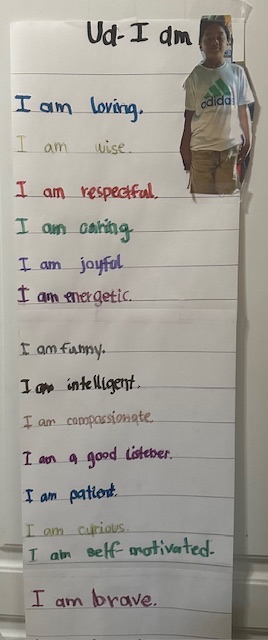 Ud- I am
adidas
I am loving.
I am wise.
I am respectful.
I am caring
I am joyful
I am energetic.
I am funny.
I am intelligent.
I am compassionate
I am a good listener.
I am patient.
I am curious.
I am self-motivated.
I am brave.